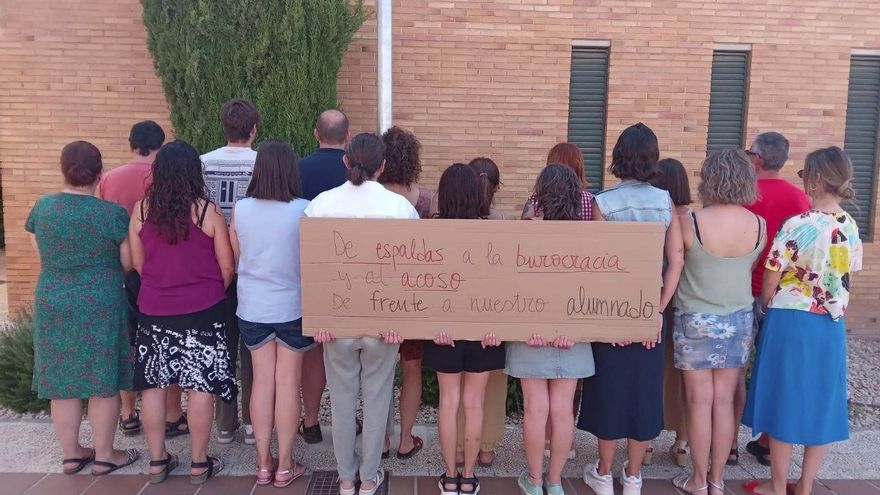 De espaldas a la burocracia
y al acoso
De frente a nuestro alumnado